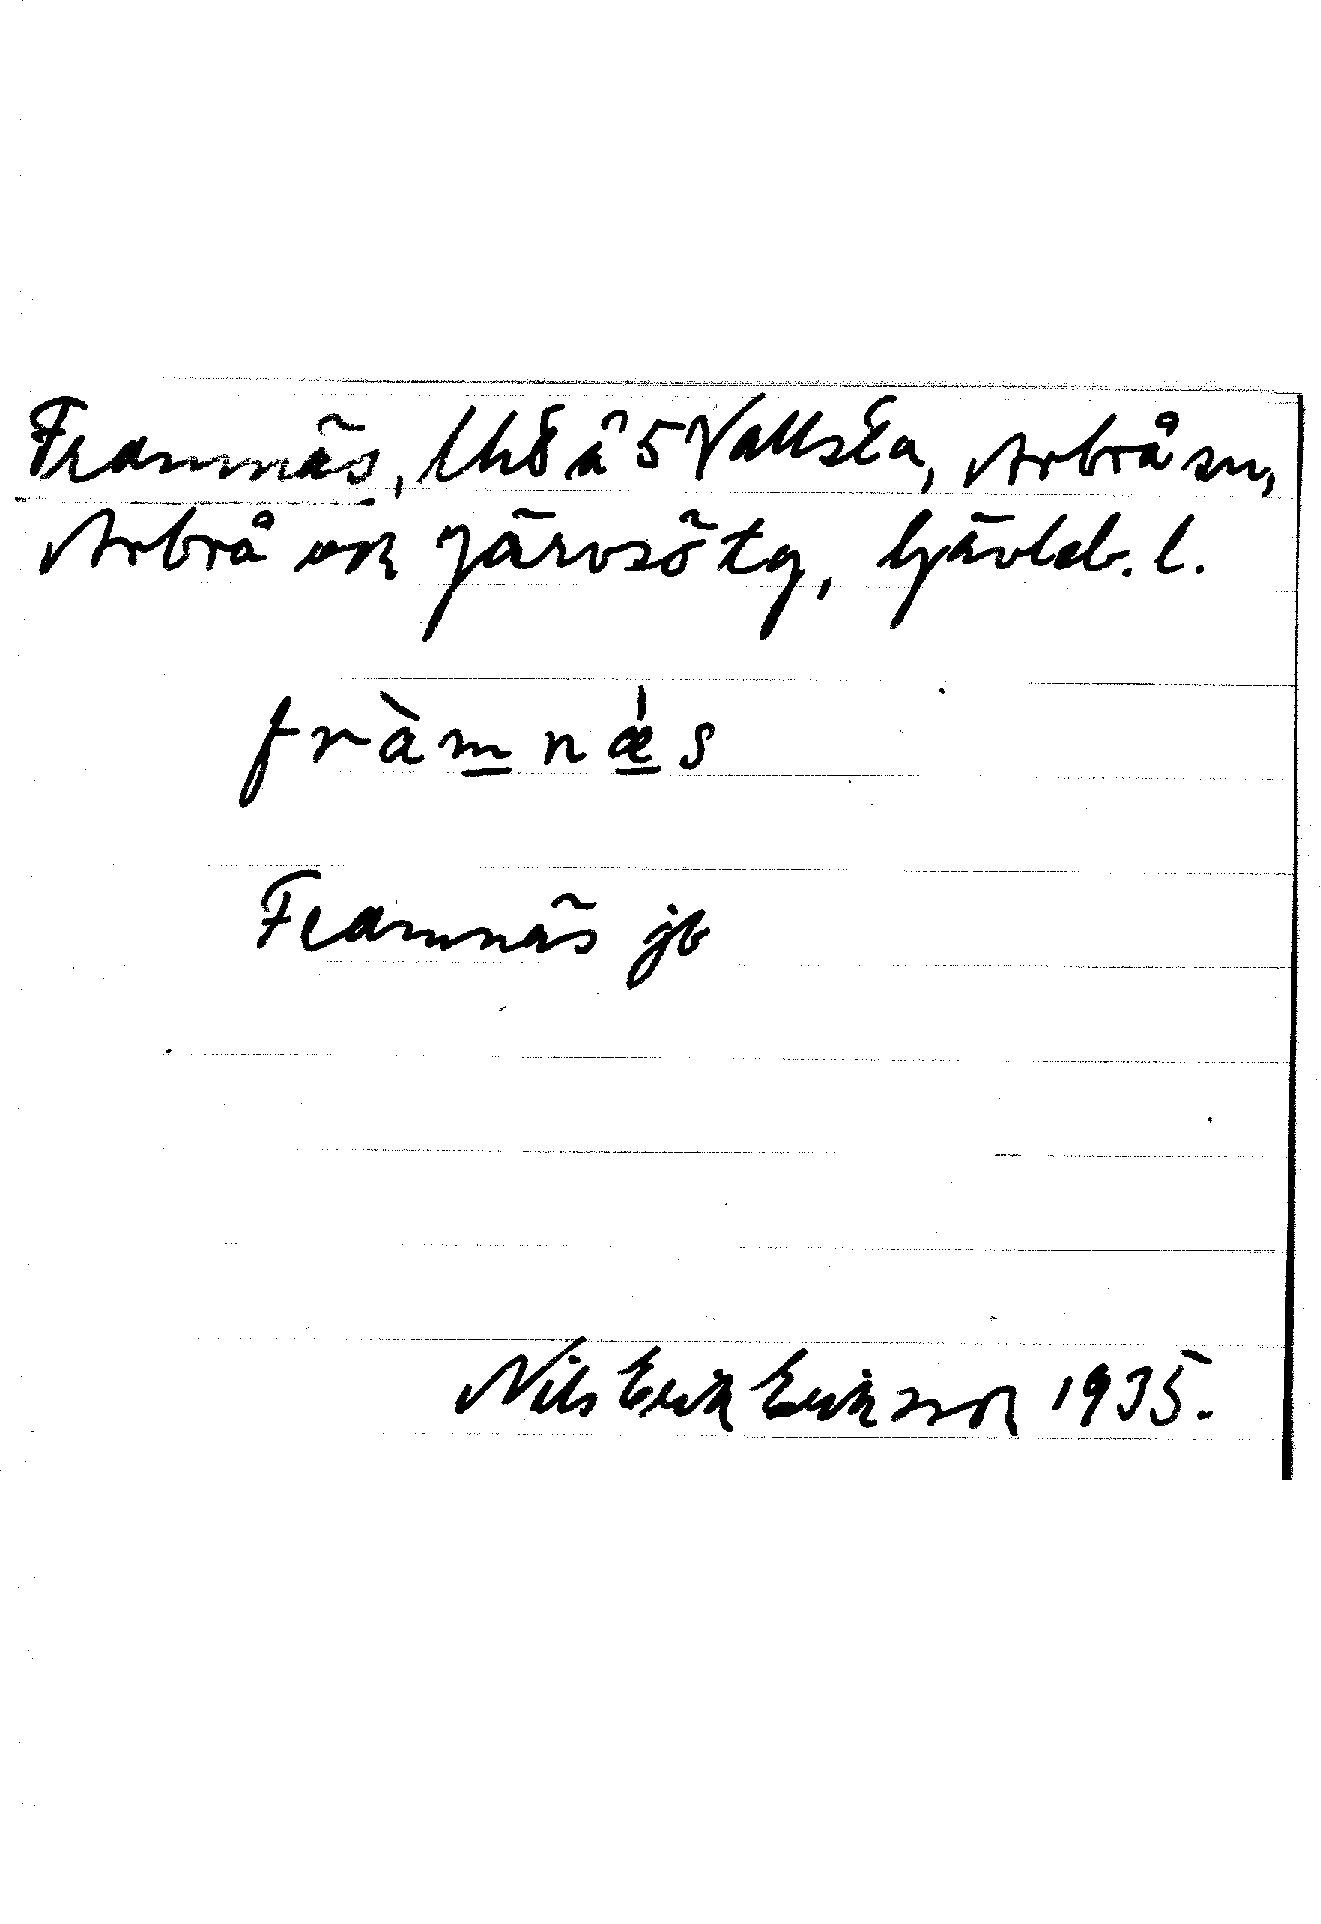 Framnäs, lht å 5 Vallsta, Arbrå sn,
Arbrå ok Järvsö tg, Gävleb. l.
fràmnǽs
Framnäs jb
Nils Erik Eriksson 1935.